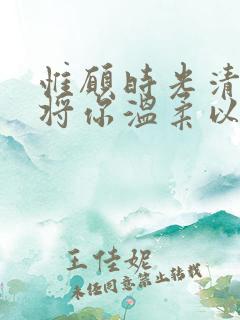 惟愿时光清
将你温柔以
王佳妮
未经同意禁止转载